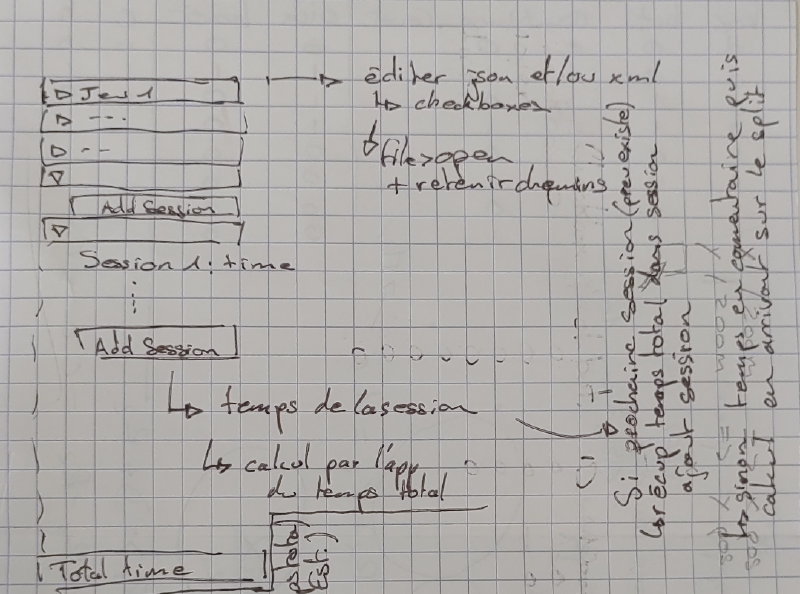 Jeu 1
éditer json et/ou xml
↳ checkboxes
file > open
+ retenir chemins
Add Session
Session 1 : time
Add Session
↳ temps de la session
↳ calcul par l'app
du temps total
Total time
Est.)
Si prochaine session (prev existe)
↳ récup temps total dans session
ajout session
↳ sinon temps en commentaire puis
calcul en arrivant sur le split